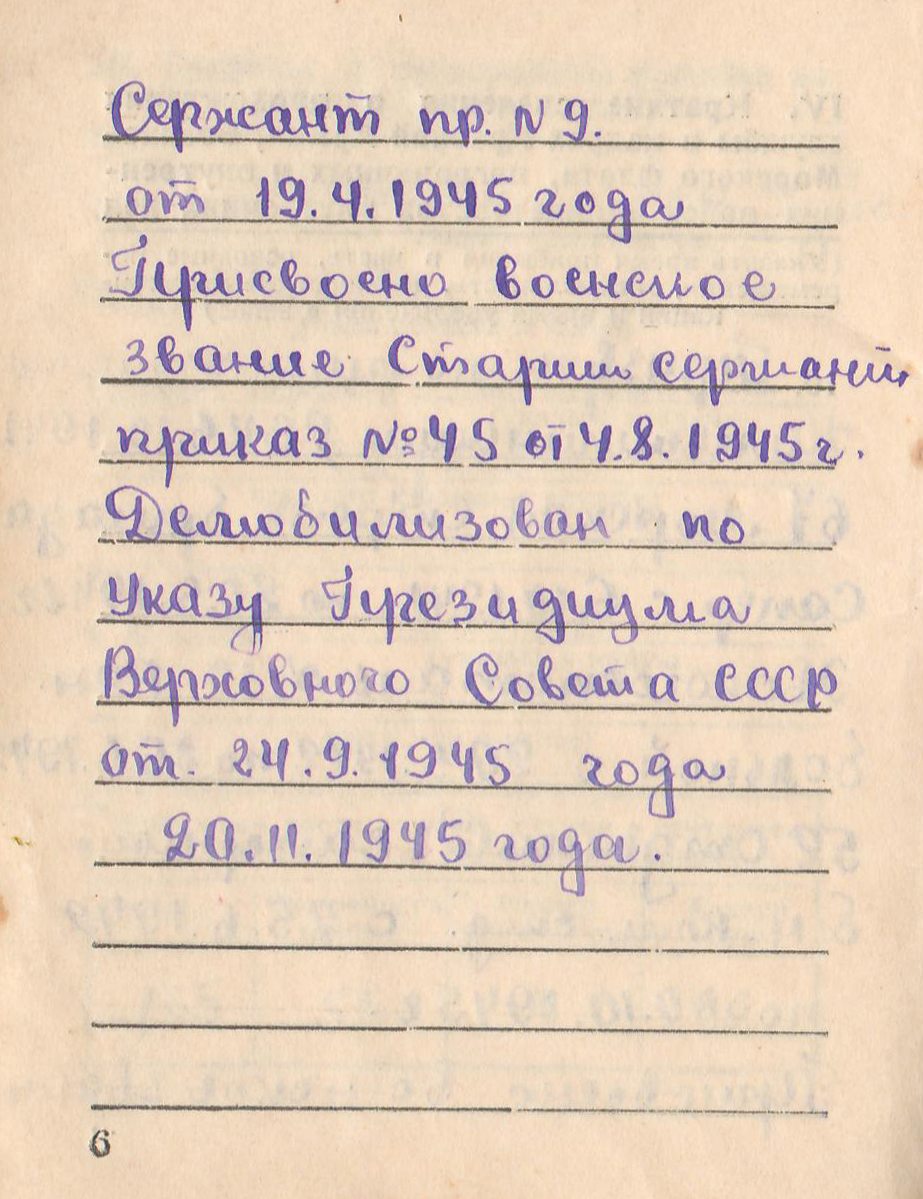 Сержант пр. N 9.
от 19.4.1945 года
Присвоено военское
звание Старший сержант
приказ №45 от 4.8.1945 г.
Демобилизован по
Указу Президиума
Верховного Совета СССР
от. 24.9.1945 года
20.11.1945 года.
6